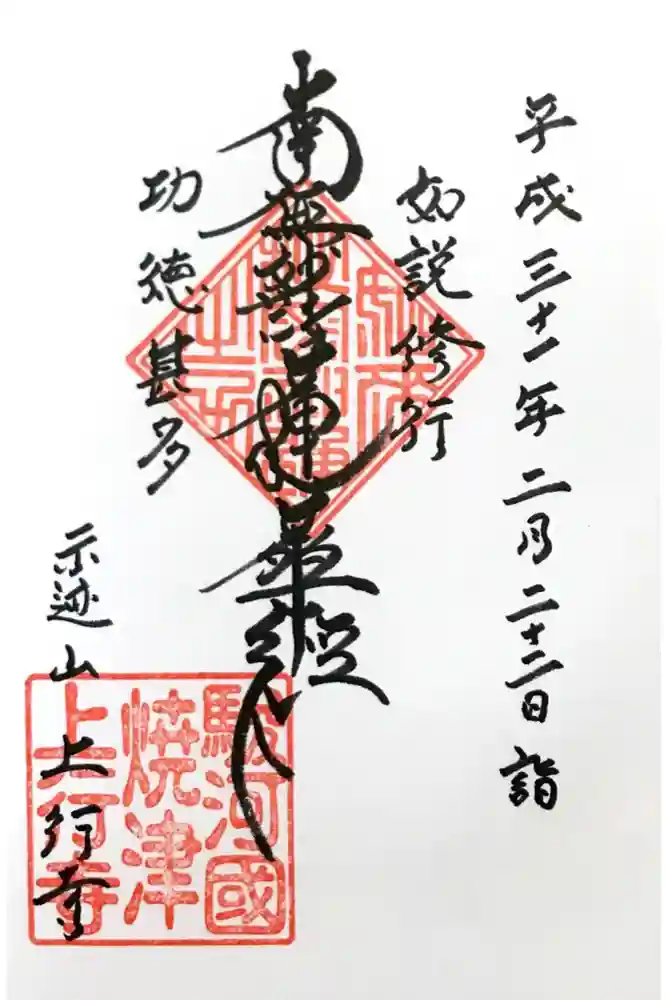 平成三十一年二月二十二日 詣
如説修行
南無妙法蓮華経
功徳甚多
示迹山
上行寺
駿河國
焼津
上行寺